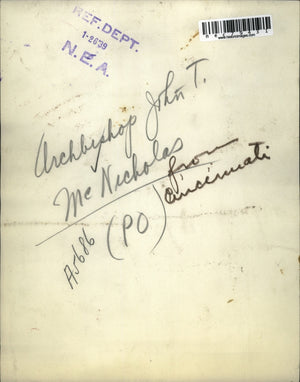 REF. DEPT.
N.E.A.
Archbishop John T.
McNicholas
from
Cincinnati
(PO)
A5686